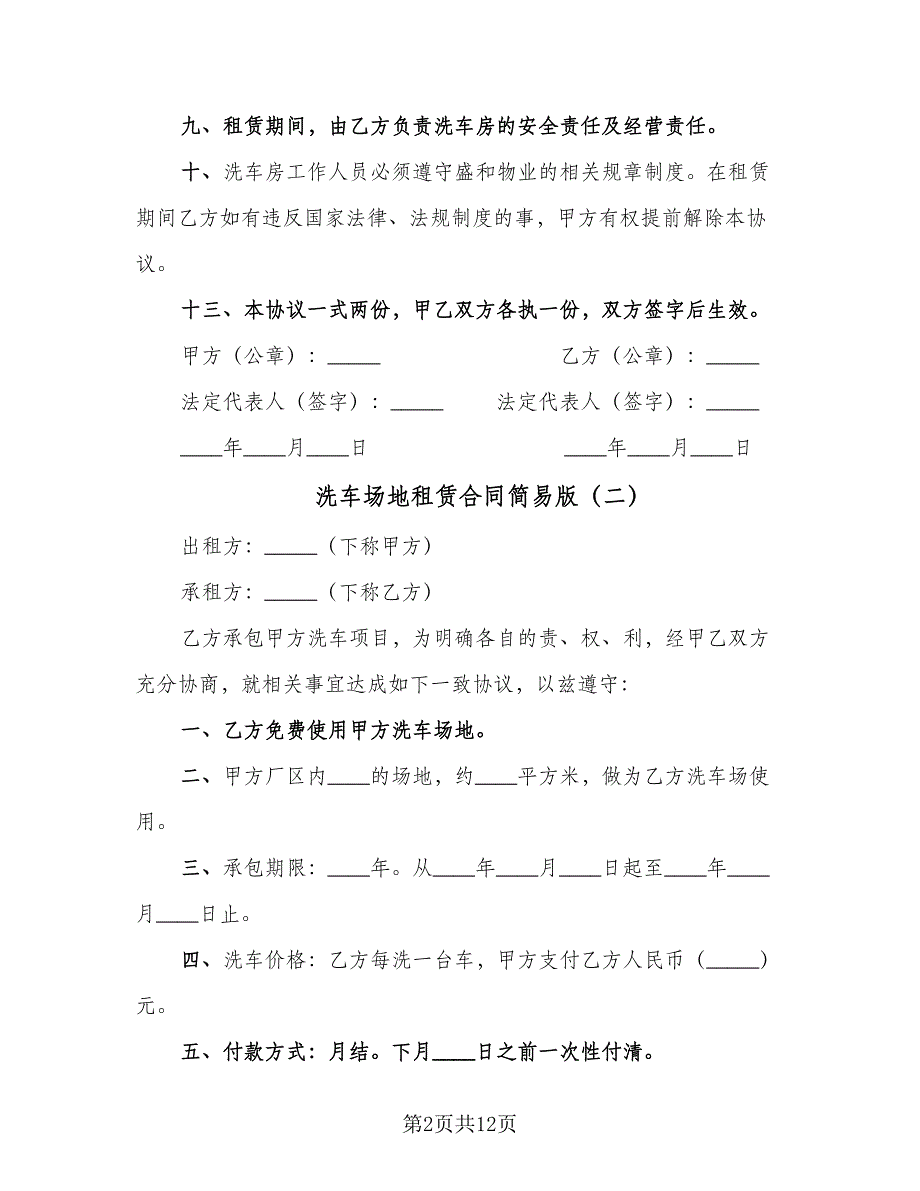 九、租赁期间，由乙方负责洗车房的安全责任及经营责任。
十、洗车房工作人员必须遵守盛和物业的相关规章制度。在租赁
期间乙方如有违反国家法律、法规制度的事，甲方有权提前解除本协
议。
十三、本协议一式两份，甲乙双方各执一份，双方签字后生效。
甲方（公章）：_____ 乙方（公章）：_____
法定代表人（签字）：_____ 法定代表人（签字）：_____
____年____月____日 ____年____月____日
洗车场地租赁合同简易版（二）
出租方：_____（下称甲方）
承租方：_____（下称乙方）
乙方承包甲方洗车项目，为明确各自的责、权、利，经甲乙双方
充分协商，就相关事宜达成如下一致协议，以兹遵守：
一、乙方免费使用甲方洗车场地。
二、甲方厂区内____的场地，约____平方米，做为乙方洗车场使
用。
三、承包期限：____年。从____年____月____日起至____年____
月____日止。
四、洗车价格：乙方每洗一台车，甲方支付乙方人民币（_____）
元。
五、付款方式：月结。下月____日之前一次性付清。
第2页共12页